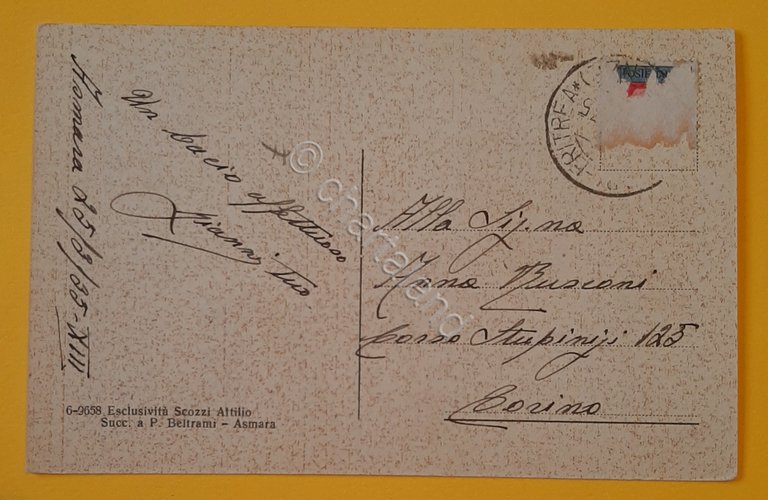 Asmara 25/3/35-XIII
Un bacio affettuoso
Gianni tuo
6-9658 Esclusività Scozzi Attilio
Succ. a P. Beltrami - Asmara
ERITREA
POSTE
Alla Sig.na
Anna Rusconi
Corso Stupinigi 125
Torino
© chartaland